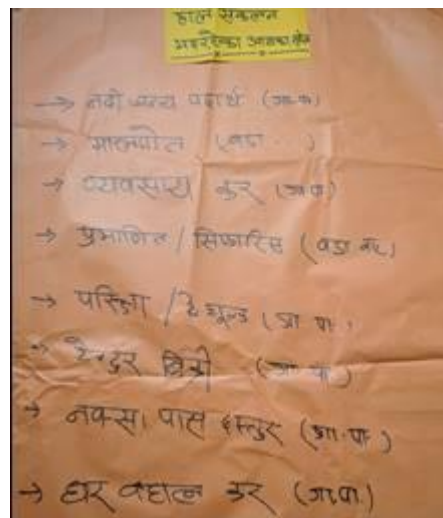 हाल संकलन
भइरहेका आयका स्रोत
→ नदी जन्य पदार्थ (गा.पा)
→ मालपोत (वडा
→ व्यवसाय कर (गा.पा)
→ प्रमाणित / सिफारिस (वडा
→ परिक्षा / (गा.पा.)
→ टेन्डर बिक्री (गा.पा.)
→ नक्सा पास दस्तुर (गा.पा.)
→ घर बहाल कर (गा.पा.)